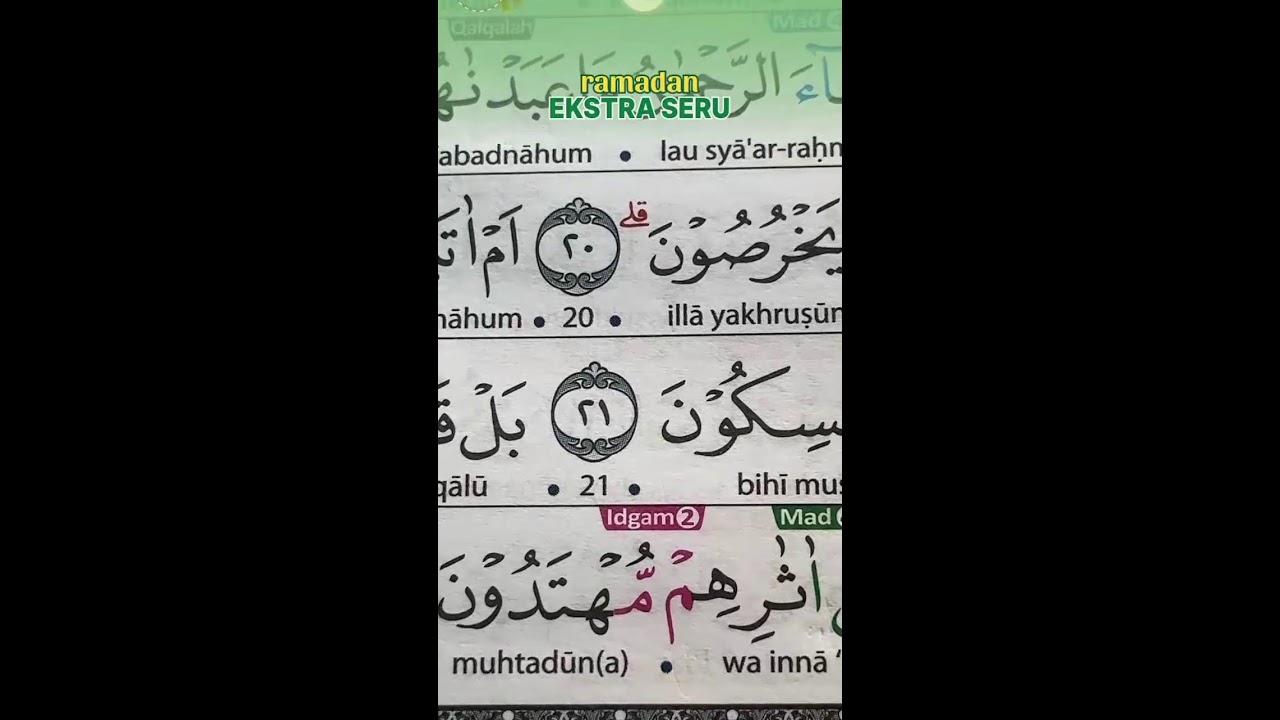 Qalqalah Mad
ramadan
EKSTRA SERU
الرَّحْمٰنُ مَا عَبَدْنٰهُ
'abadnāhum • lau syā'ar-raḥm
يَخْرُصُوْنَ ۗ ٢٠ اَمْ اٰتَ
nāhum • 20 • illā yakhruṣūn
سِكُوْنَ ٢١ بَلْ قَ
qālū • 21 • bihī mus
Idgam 2 Mad
اٰثٰرِهِمْ مُّهْتَدُوْنَ
muhtadūn(a) • wa innā ‘